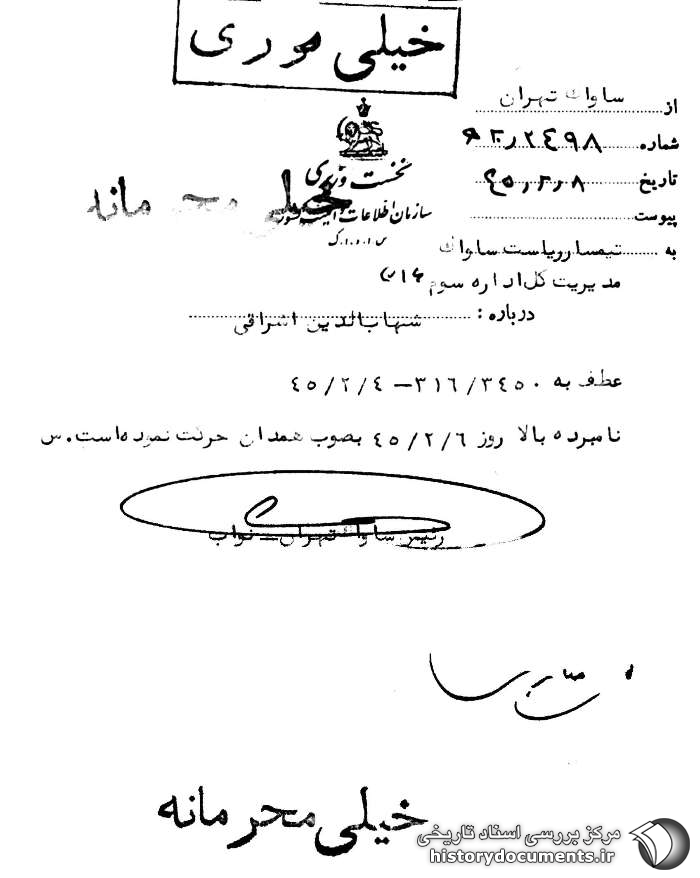 خیلی فوری
از ساواك تهران
شماره ۲۰/۲٤۹۸ ﻫ
تاریخ ٤۵/۲/۸
پیوست
نخست وزیری
سازمان اطلاعات و امنیت کشور
س.ا.و.ا.ک
خیلی محرمانه
به تیمسار ریاست ساواك
مدیریت کل اداره سوم ۳۱۶
درباره : شهاب الدین اشراقی
عطف به ۳٤۵۰/۳۱٦ – ٤۵/۲/٤
نامبرده بالا روز ٤۵/۲/٦ بصوب همدان حرکت نموده است . س
رئیس ساواك تهران – نواب
خیلی محرمانه
مرکز بررسی اسناد تاریخی
historydocuments.ir